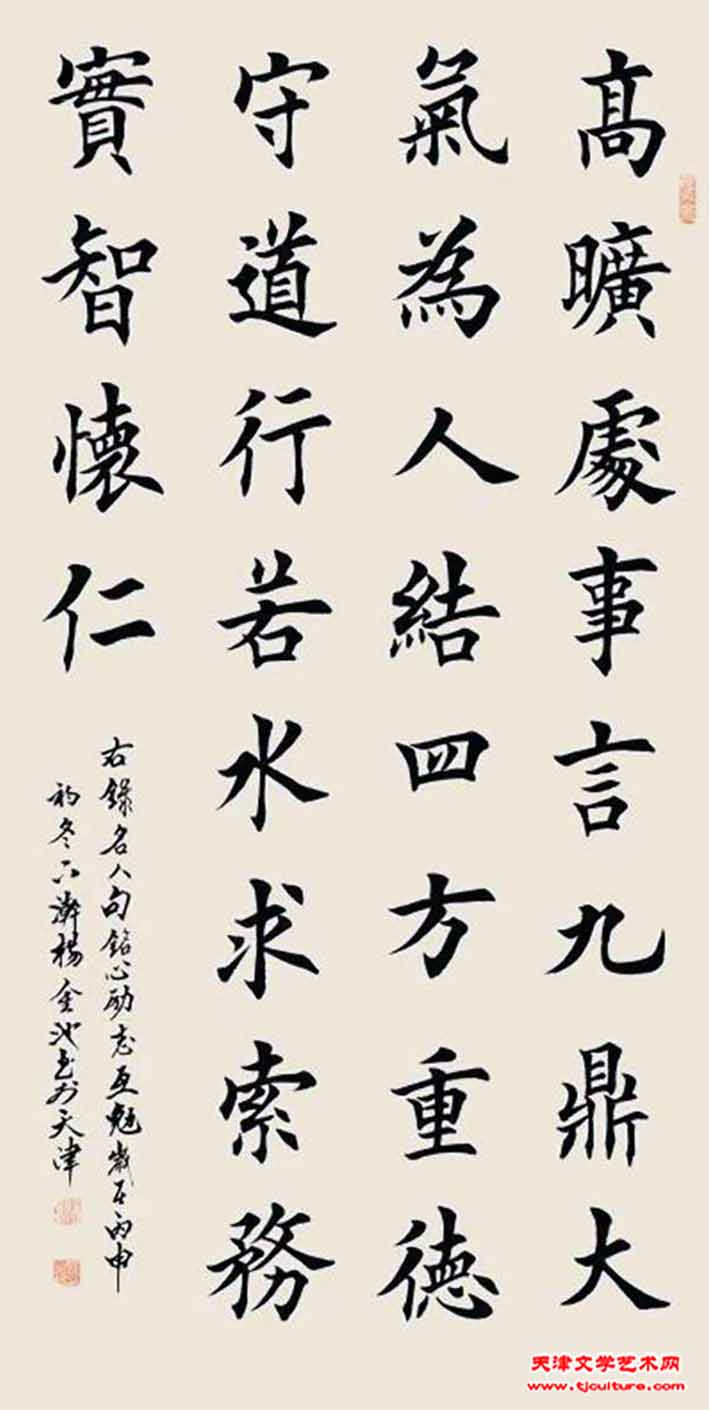 髙曠處事言九鼎大
氣為人結四方重德
守道行若水求索務
實智懷仁
右録名人句銘心勵志互勉歲在丙申
初冬六漸楊金池書於天津
天津文学艺术网
www.tjculture.com